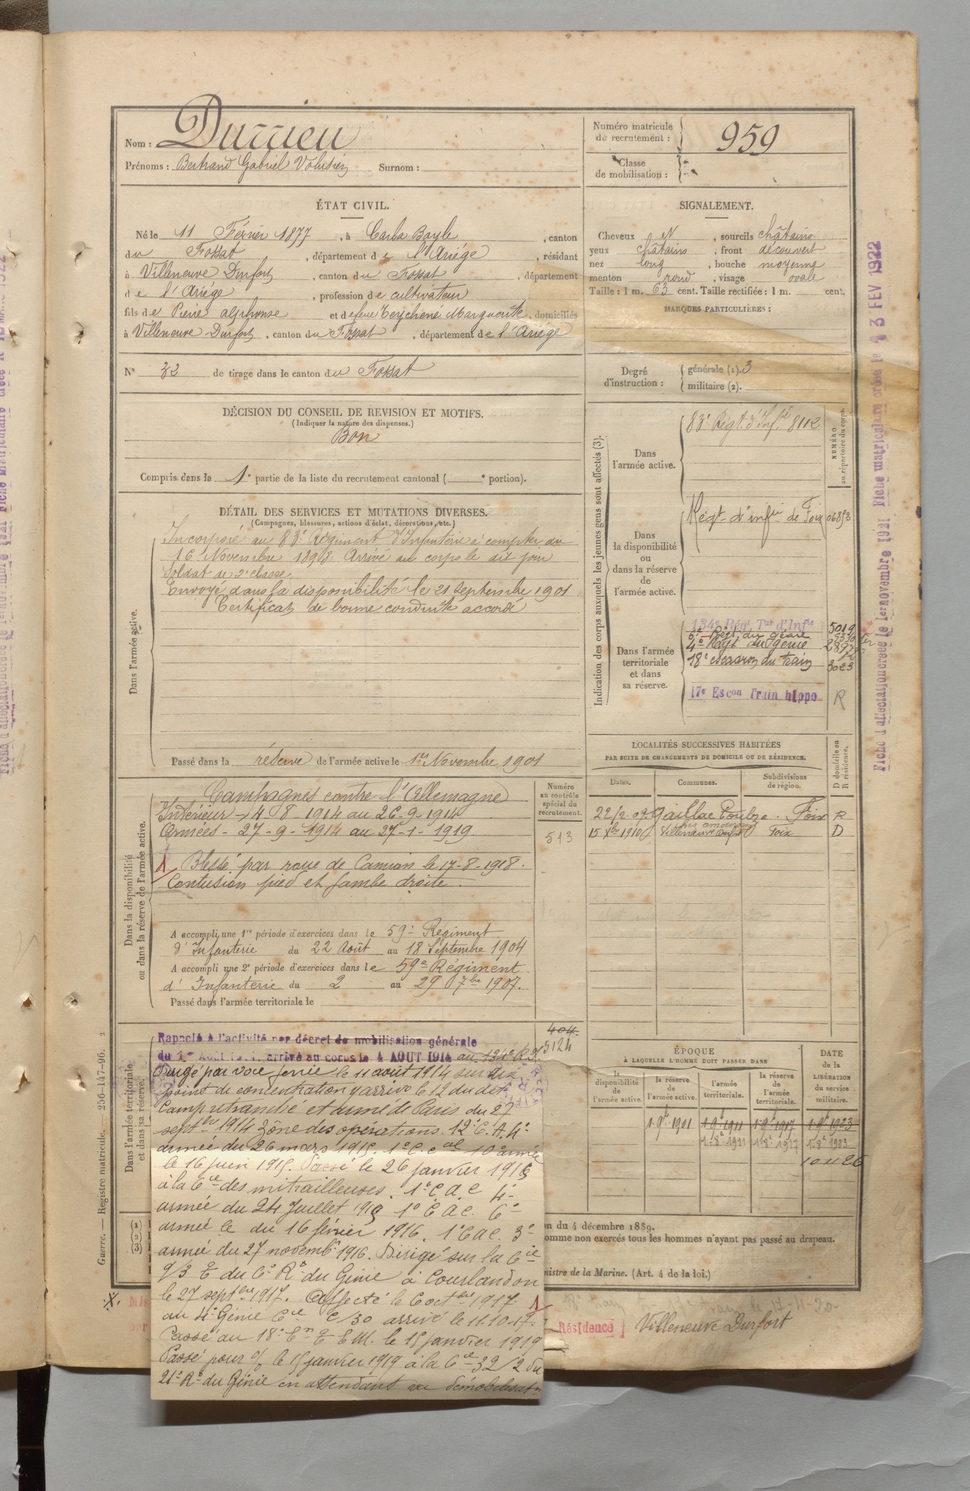 Nom : Durrieu
Prénoms : Bertrand Gabriel Surnom :
Numéro matricule du recrutement : 959
Classe de mobilisation :
ÉTAT CIVIL.
Né le 11 Février 1877, à Carla Bayle, canton
du Fossat, département de l'Ariège, résidant
à Villeneuve Durfort, canton du Fossat, département
de l'Ariège, profession de cultivateur
fils de Pierre alphonse et de feue Marguerite, domiciliés
à Villeneuve-Durfort, canton du Fossat, département de l'Ariège
N° 32 de tirage dans le canton du Fossat
SIGNALEMENT.
Cheveux N, sourcils châtains
yeux châtains, front découvert
nez long, bouche moyenne
menton rond, visage ovale
Taille : 1 m. 63 cent. Taille rectifiée : 1 m. cent.
MARQUES PARTICULIÈRES :
Degré d'instruction : générale (1). 3
militaire (2).
DÉCISION DU CONSEIL DE REVISION ET MOTIFS.
(Indiquer la nature des dispenses.)
Bon
Compris dans la 1e partie de la liste du recrutement cantonal ( e portion).
DÉTAIL DES SERVICES ET MUTATIONS DIVERSES.
(Campagnes, blessures, actions d'éclat, décorations, etc.)
Dans l'armée active.
Incorporé au 83e Régiment d'Infanterie à compter du
16 Novembre 1898. Arrivé au corps le dit jour
Soldat de 2e classe.
Envoyé dans la disponibilité le 21 septembre 1901
Certificat de bonne conduite accordé
Passé dans la réserve de l'armée active le 1er Novembre 1901
Indication des corps auxquels les jeunes gens sont affectés (3).
NUMÉRO au répertoire du corps.
Dans l'armée active.
83e Régt d'Inf.ie 8112
Dans la disponibilité ou dans la réserve de l'armée active.
Régt d'infie de Foix 06853
Dans l'armée territoriale et dans sa réserve.
134e Rég. Tal d'Infie 5019
4e Régt du génie
18e escadron du train 3023
17e Escon Train hippo R
LOCALITÉS SUCCESSIVES HABITÉES
PAR SUITE DE CHANGEMENTS DE DOMICILE OU DE RÉSIDENCE.
Dates. Communes. Subdivisions de région. D domicile ou R résidence.
Gaillac Toulza Foix R
Villeneuve Durfort Foix D
Dans la disponibilité ou dans la réserve de l'armée active.
Numéro au contrôle spécial du recrutement.
513
Campagnes contre l'Allemagne
Intérieur - 4-8-1914 au 26-9-1914
Armées - 27-9-1914 au 27-1-1919
Blessé par roue de Camion le 17-8-1918.
Contusion pied et jambe droite.
A accompli une 1re période d'exercices dans le 59e Régiment
d'Infanterie du 22 Août au 18 Septembre 1904
A accompli une 2e période d'exercices dans le 59e Régiment
d'Infanterie du 2 au 29 7bre 1907.
Passé dans l'armée territoriale le
Dans l'armée territoriale et dans sa réserve.
404
5124
Rappelé à l'activité par décret de mobilisation générale
du 1er Août 1914, arrivé au corps le 4 AOUT 1914 au 134e R.T.
Dirigé par voie ferrée le 11 août 1914 sur
point de concentration y arrive le 12 du dit
Camp retranché et armée de Paris du 27
septbre 1914 Zône des opérations. 12e C.A. 4e
armée du 26 mars 1915. 10e armée
le 16 juin 1915. Passé le 26 janvier 1916
à la Cie des mitrailleuses. 1e C.A.C 4e
armée du 24 Juillet 1915 1e C.A.C. 6e
armée le du 16 février 1916. 1e C.A.C. 3e
armée du 27 novembre 1916. Dirigé sur la Cie
9/3 T du 6e R. du Génie à Courlandon
le 27 septbre 1917. Affecté le 6 octbre 1917
au 4e Génie Cie C/30 arrivé le 11.10.17.
Passé au 18e le 15 janvier 1919
Passé pour le 15 janvier 1919 à la Cie 32/2 du
21e R. du Génie en attendant sa démobilisation
ÉPOQUE
À LAQUELLE L'HOMME DOIT PASSER DANS
la disponibilité de l'armée active. la réserve de l'armée active. l'armée territoriale. la réserve de l'armée territoriale.
DATE DE LA LIBÉRATION du service militaire.
1-9bre 1901 1-9bre 1911 1-9bre 1917 1-9bre 1923
du 4 décembre 1889.
comme non exercés tous les hommes n'ayant pas passé au drapeau.
Ministre de la Marine. (Art. 4 de la loi.)
Résidence Villeneuve Durfort
Guerre. — Registre matricule. 256-147-96.
Fiche d'affectation créée le 1er novembre 1921 Fiche matriculaire créée le 3 FEV 1922